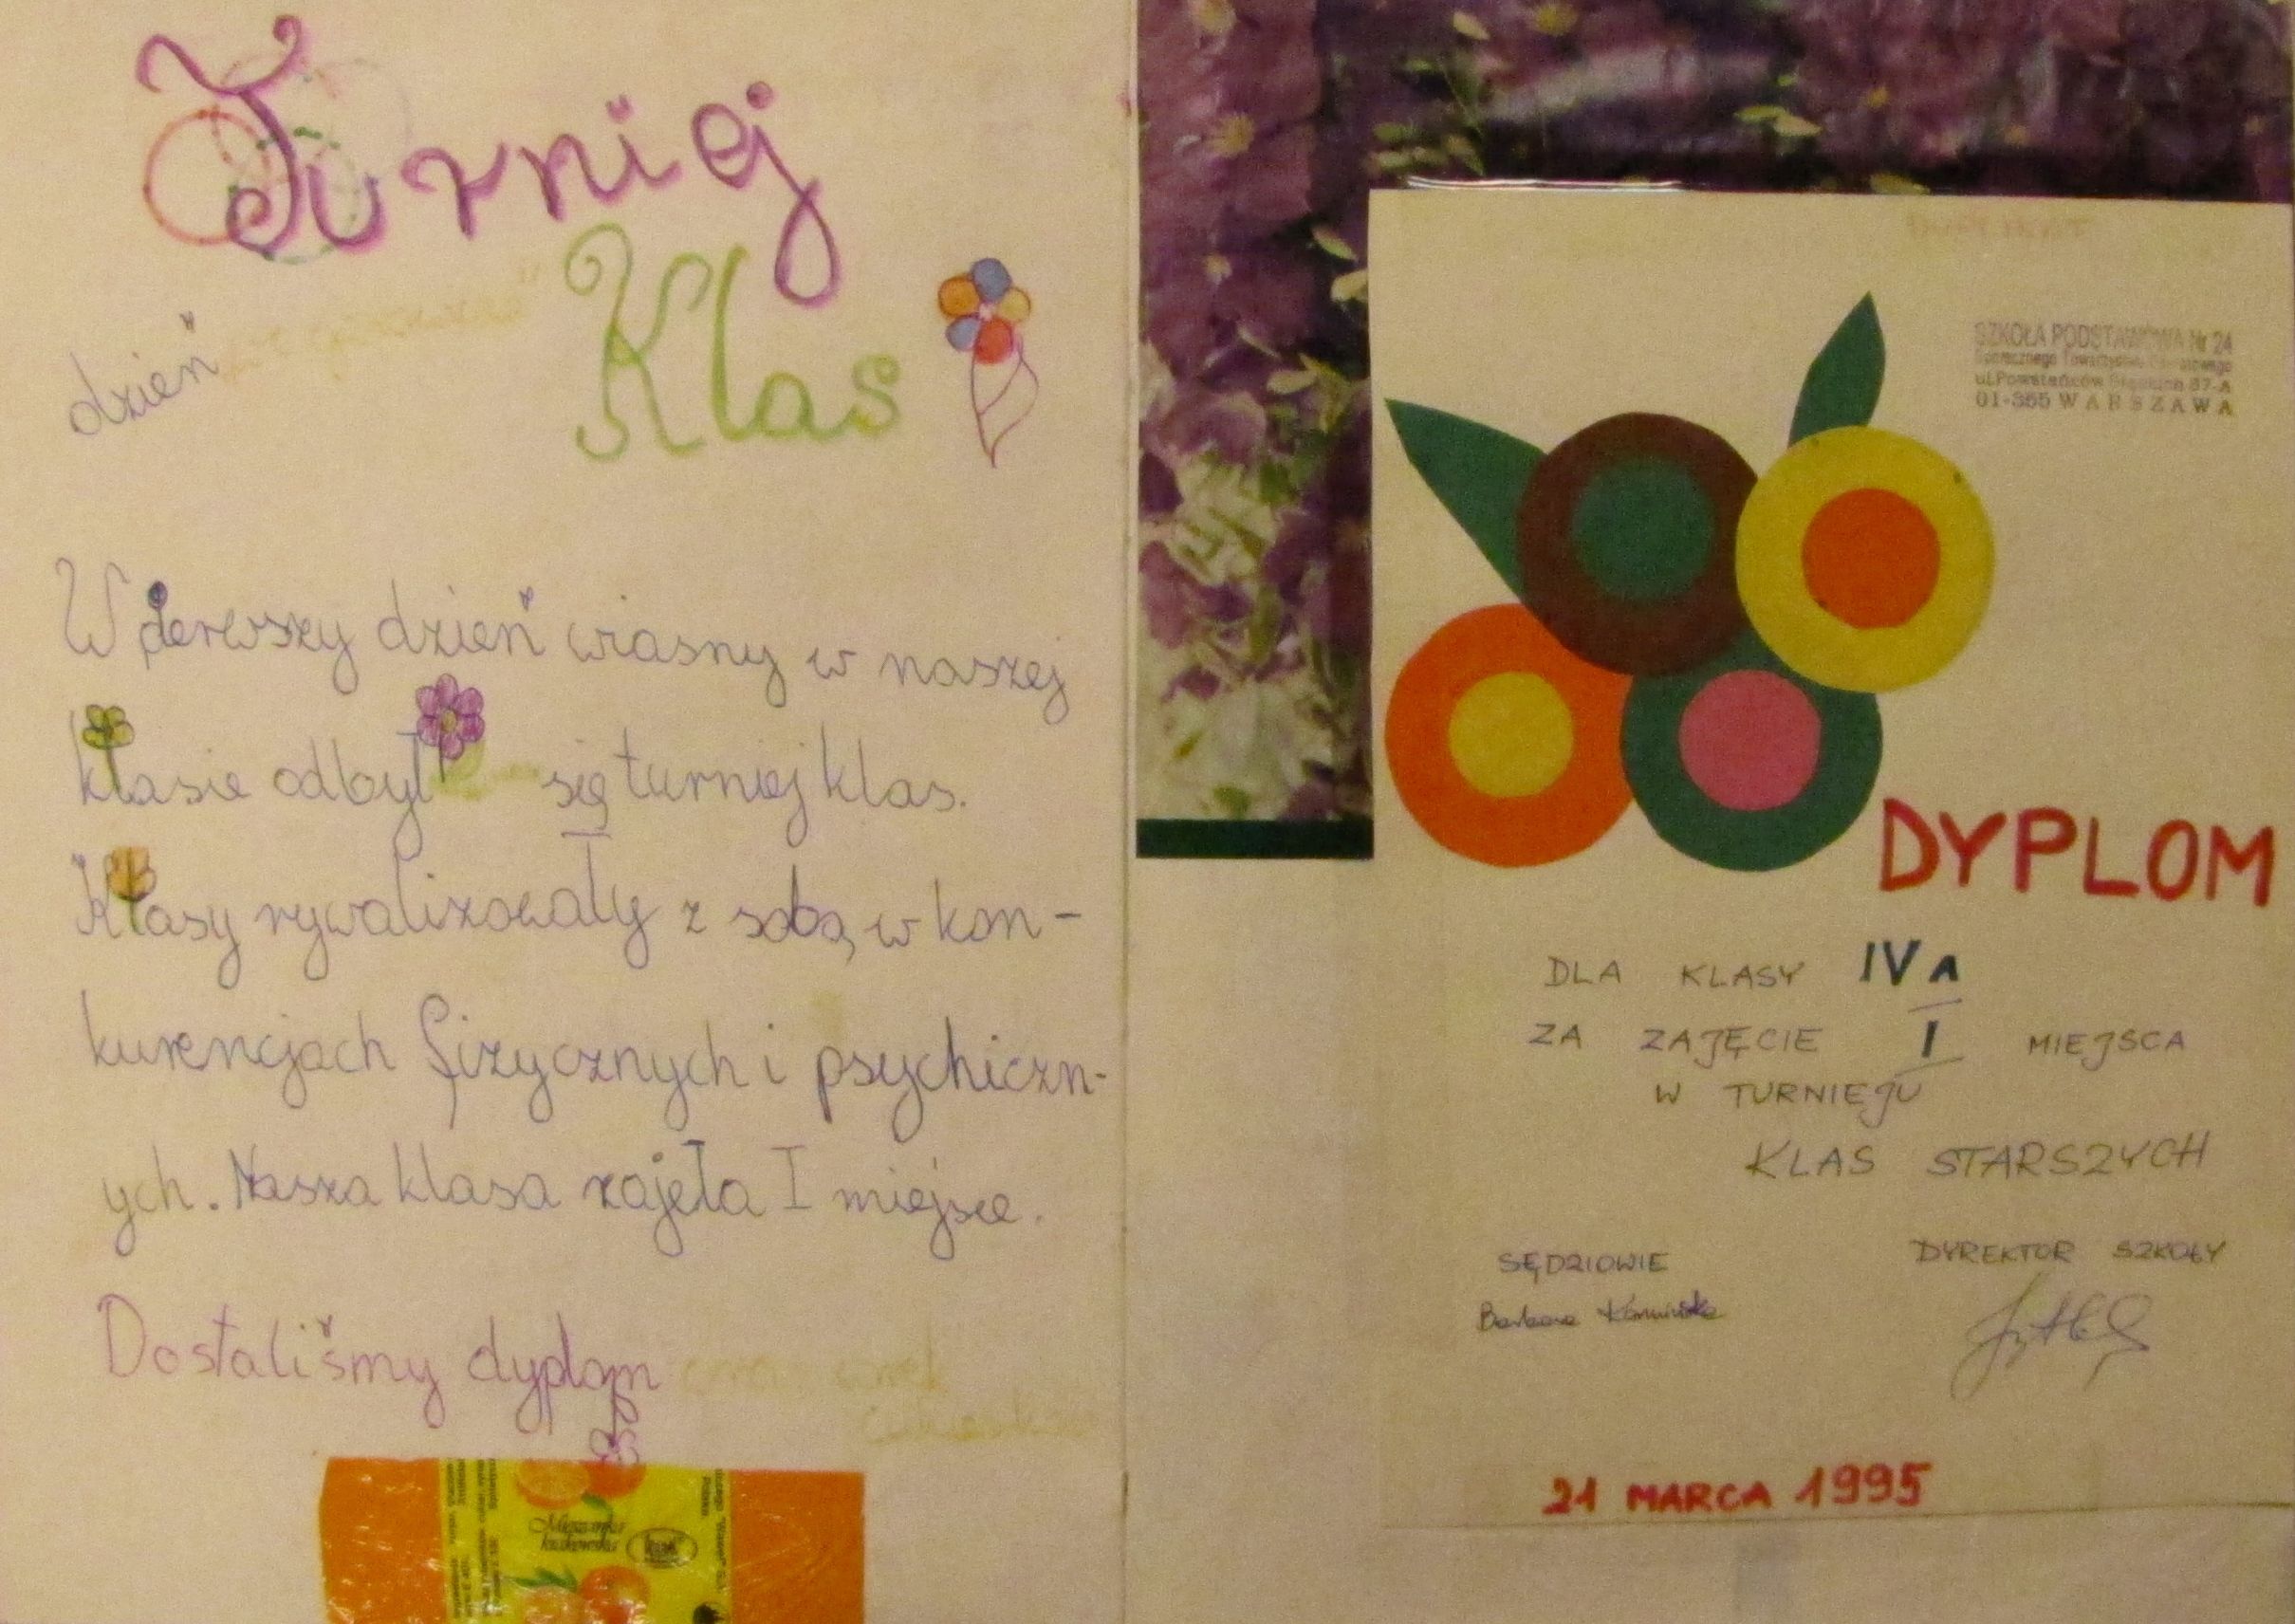 Turniej
Klas
dzień
W pierwszy dzień wiasny w naszej
klasie odbył się turniej klas.
Klasy rywalizowały z sobą w kon-
kurencjach fizycznych i psychiczn-
ych. Nasza klasa zajęła I miejsce.
Dostaliśmy dyplom
Mieszanka
krakowska
SZKOŁA PODSTAWOWA Nr 24
Społecznego Towarzystwa Oświatowego
ul.Powstańców Śląskich 67-A
01-355 WARSZAWA
DYPLOM
DLA KLASY IV A
ZA ZAJĘCIE I MIEJSCA
W TURNIEJU
KLAS STARSZYCH
SĘDZIOWIE
Barbara
DYREKTOR SZKOŁY
21 MARCA 1995